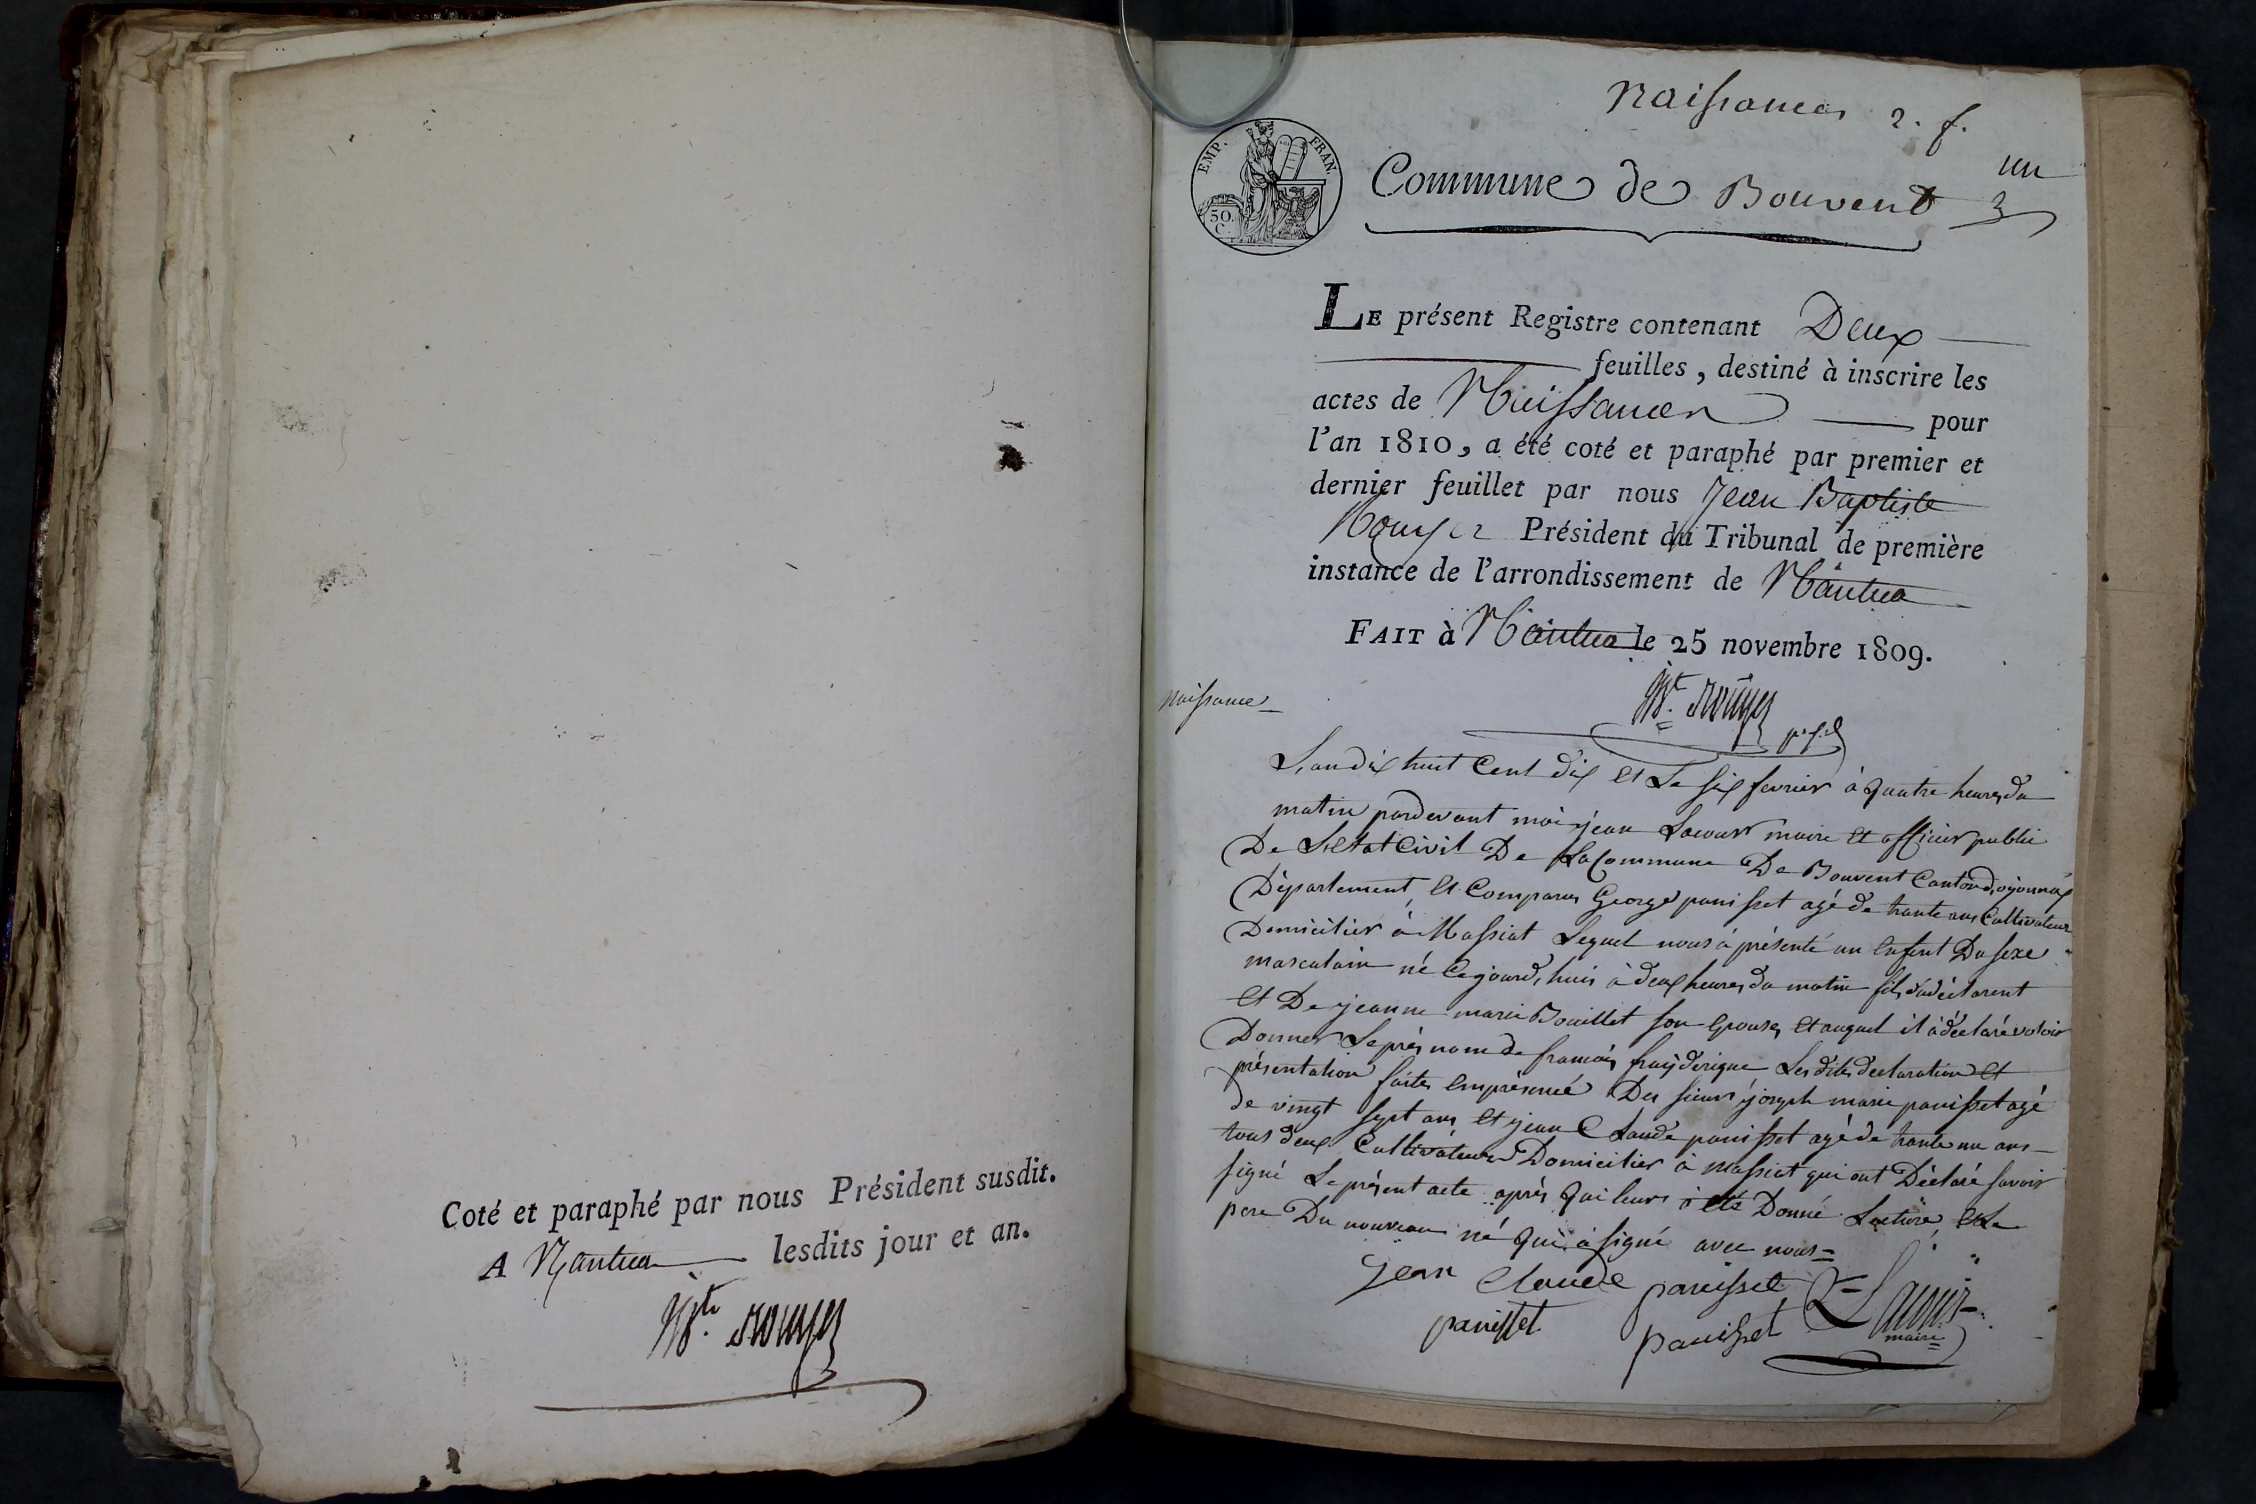 Coté et paraphé par nous Président susdit.
A Nantua lesdits jour et an.
Jn Bte Rouyer
Naissances 2. f.
un
EMP. FRAN.
50. C.
Commune de Bouvent
LE présent Registre contenant Deux
feuilles, destiné à inscrire les
actes de Naissances pour
l'an 1810, a été coté et paraphé par premier et
dernier feuillet par nous Jean Baptiste
Rouyer Président du Tribunal de première
instance de l'arrondissement de Nantua
FAIT à Nantua le 25 novembre 1809.
Rouyer
Naissance
L'an dix huit Cent dix et Le six fevrier à quatre heures du
matin pardevant moi jean Lacour maire et officier public
De L'Etat Civil De La Commune De Bouvent Canton d'oyonnax
Département, est Comparu George panisset agé de trante ans Cultivateur
Domicilier à Massiat Lequel nous à présenté un Enfent Du sexe
masculain né Cejourd'hui à deux heures du matin fils du déclarent
Et De jeanne marie Bouillet son Epouse, Et auquel il à déclaré voloir
Donner Le près nom de francois fraÿderique Les dites declaration Et
présentation faites Emprésence Des sieurs joseph marie panisset agé
de vingt sept ans Et jean Claude panisset agé de trante un ans
tous deux Cultivateurs Domicilier à Massiat qui ont Déclaré savoir
signé Le présent acte après quil leurs à été Donné Lecture, Et Le
pere Du nouveau né qui à signé avec nous
jean Claude panisset
panisset panisset Lacour
maire